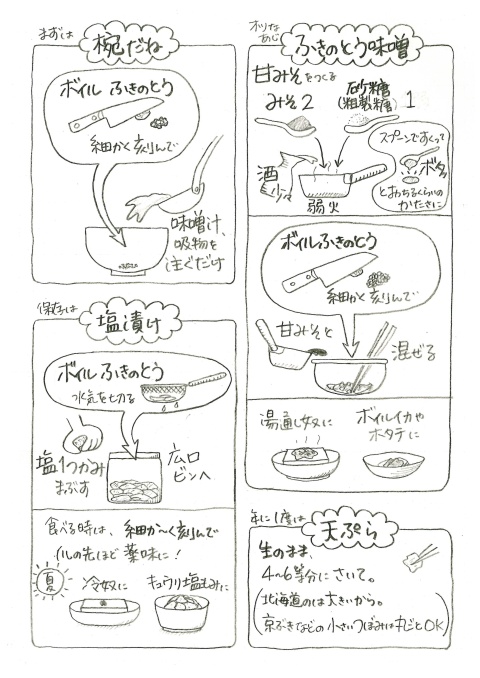 まずは
椀だね
ボイル ふきのとう
細かく刻んで
味噌汁、
吸物を
注ぐだけ
保存は
塩漬け
ボイル ふきのとう
水気を切る
塩1つかみ
まぶす
広口
ビンへ
食べる時は、細か〜く刻んで
耳の先ほど 薬味に!
夏
冷奴に
キュウリ塩もみに
オツな
あじ
ふきのとう味噌
甘みそをつくる
みそ2
砂糖
(粗製糖)
1
酒
少々
弱火
スプーンですくって
ボタッ
とおちるくらいの
かたさに
ボイルふきのとう
細かく刻んで
甘みそと
混ぜる
湯通し奴に
ボイルイカや
ホタテに
年に1度は
天ぷら
生のまま、
4〜6等分にさいて。
(北海道のは大きいから。
京ぶきなどの小さいつぼみは丸ごとOK)